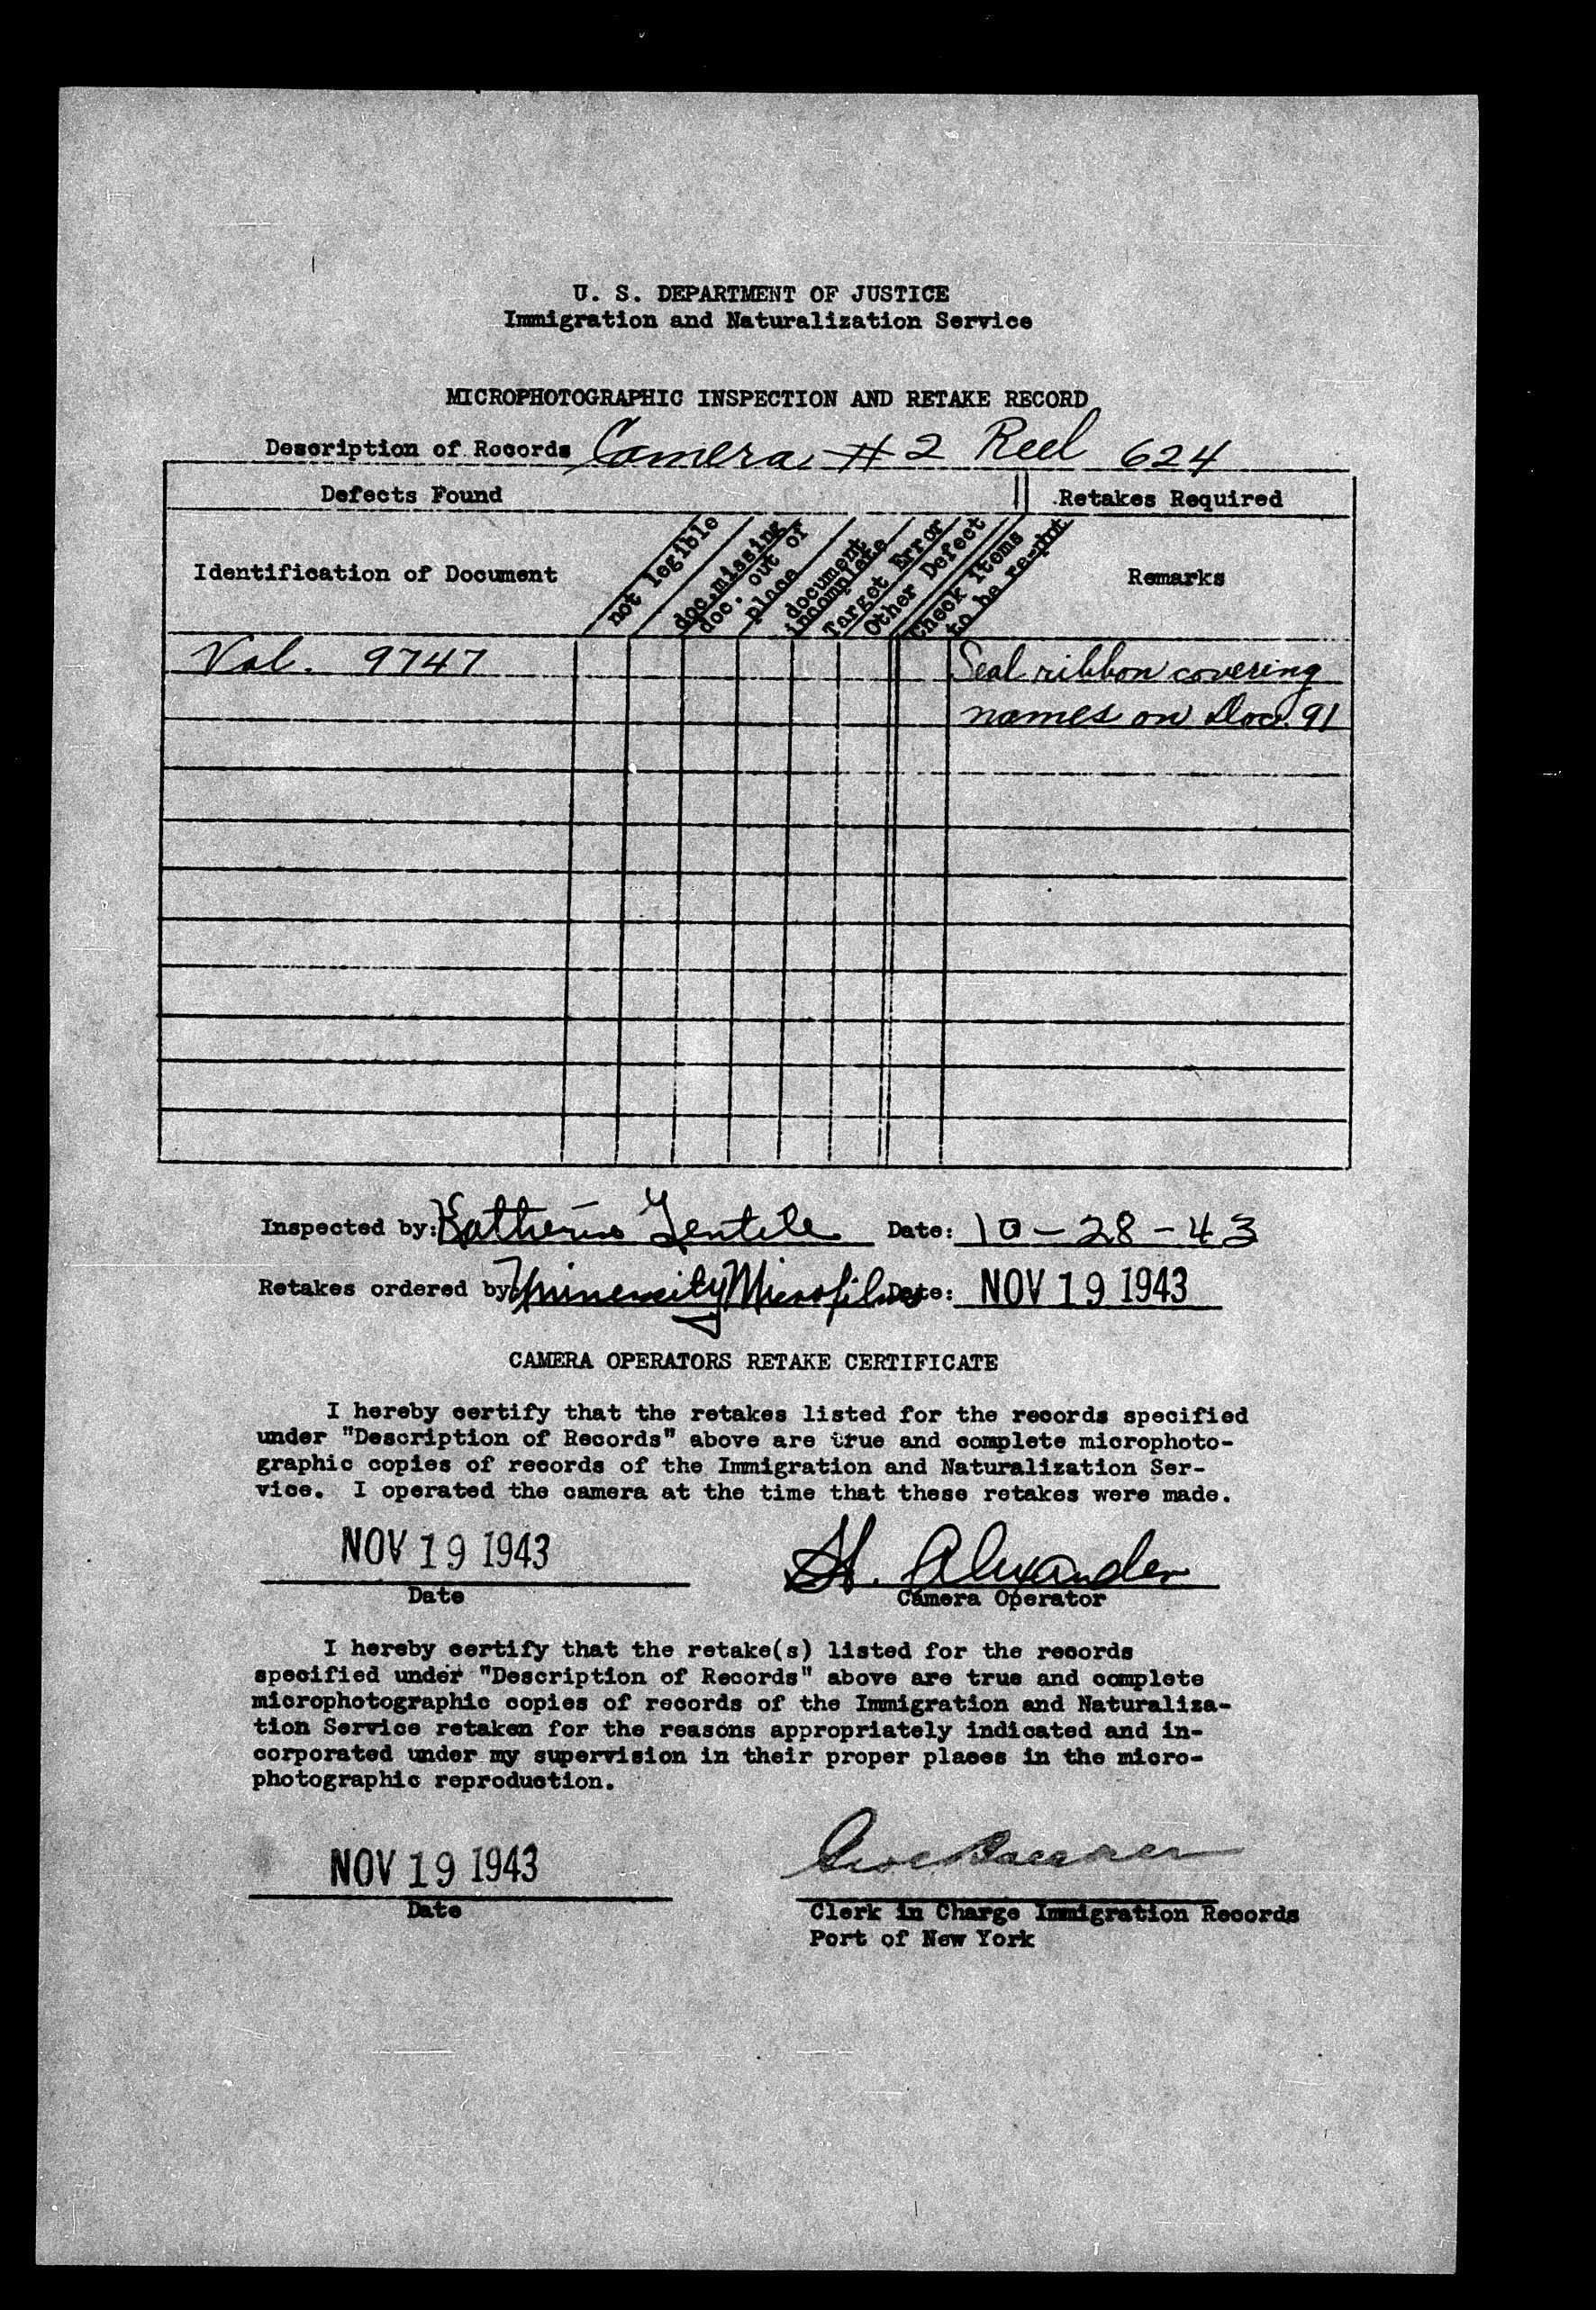 U. S. DEPARTMENT OF JUSTICE
Immigration and Naturalization Service
MICROPHOTOGRAPHIC INSPECTION AND RETAKE RECORD
Description of Records Camera #2 Reel 624
Defects Found Retakes Required
Identification of Document
not legible
doc. missing
doc. out of
place
document
incomplete
Target Error
Other Defect
Check items
to be re-phot
Remarks
Vol. 9747 Seal ribbon covering
names on Doc. 91
Inspected by: Katherine Gentile Date: 10-28-43
Retakes ordered by University Microfilms Date: NOV 19 1943
CAMERA OPERATORS RETAKE CERTIFICATE
I hereby certify that the retakes listed for the records specified
under "Description of Records" above are true and complete microphoto-
graphic copies of records of the Immigration and Naturalization Ser-
vice. I operated the camera at the time that these retakes were made.
NOV 19 1943 H. Alexander
Date Camera Operator
I hereby certify that the retake(s) listed for the records
specified under "Description of Records" above are true and complete
microphotographic copies of records of the Immigration and Naturaliza-
tion Service retaken for the reasons appropriately indicated and in-
corporated under my supervision in their proper places in the micro-
photographic reproduction.
NOV 19 1943
Date Clerk in Charge Immigration Records
Port of New York